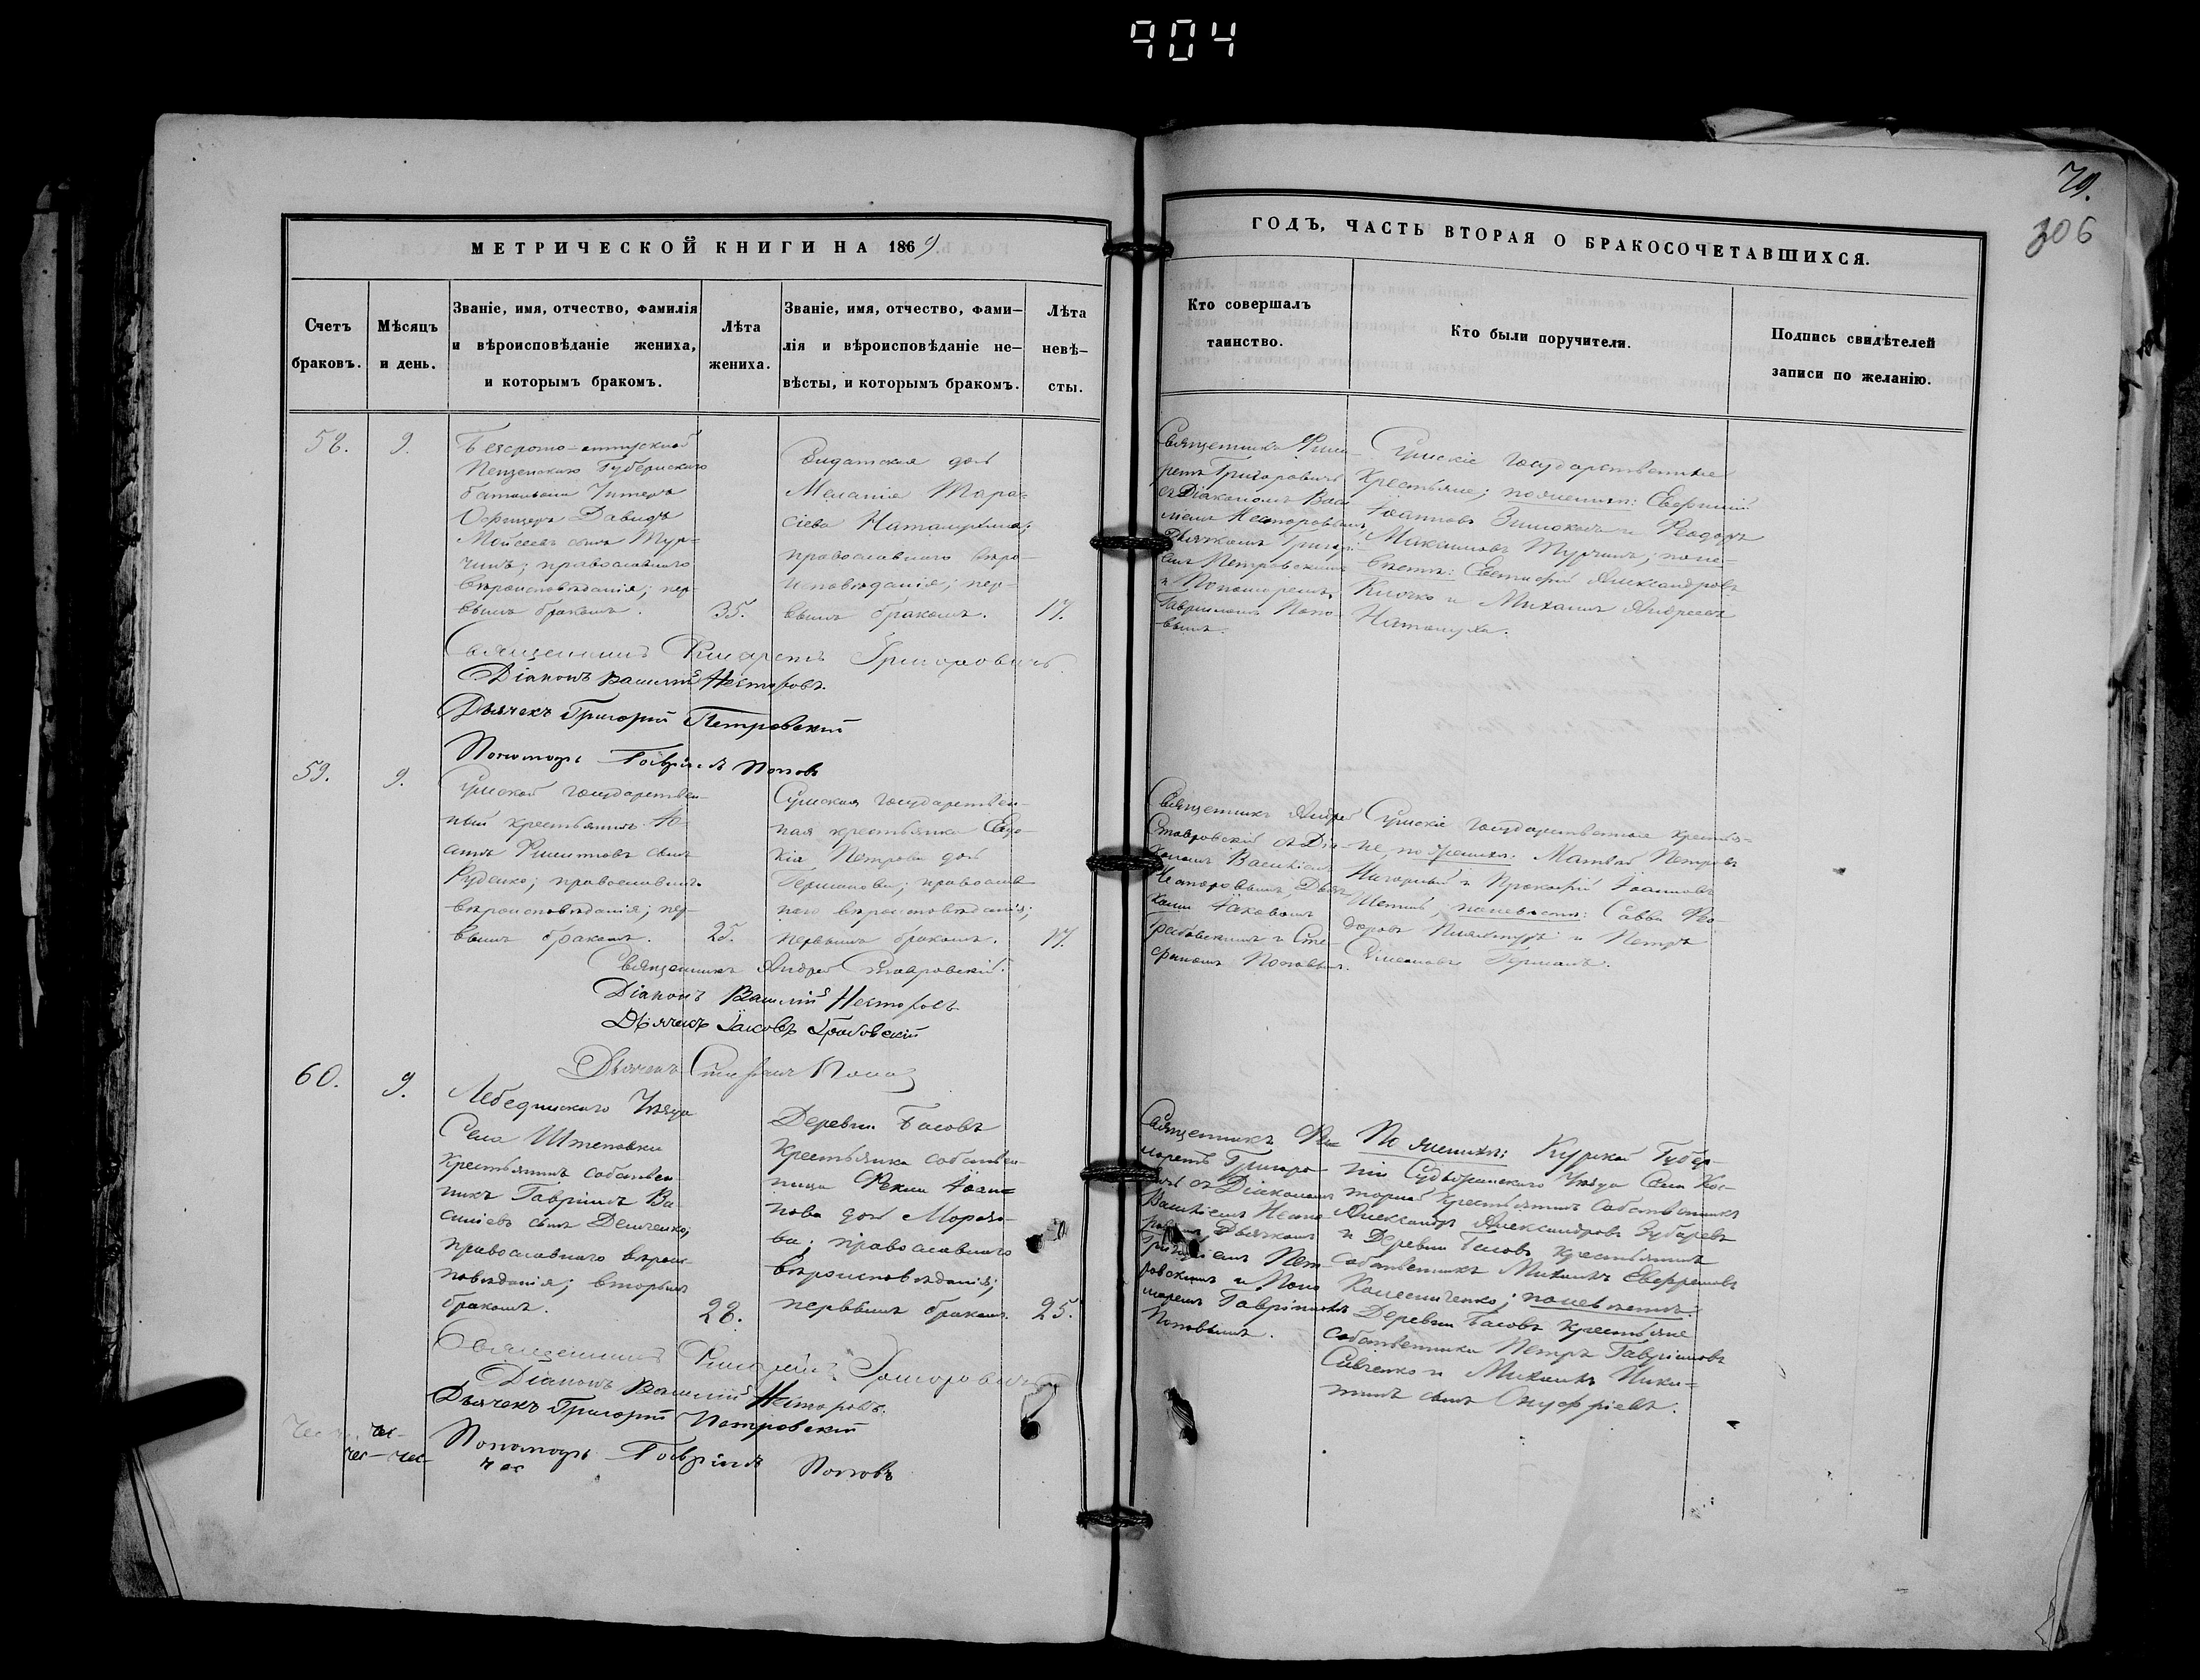 904
79.
306
МЕТРИЧЕСКОЙ КНИГИ НА 1869
ГОДЪ, ЧАСТЬ ВТОРАЯ О БРАКОСОЧЕТАВШИХСЯ.
Счетъ
браковъ.
Мѣсяцъ
и день.
Званіе, имя, отчество, фамилія
и вѣроисповѣданіе жениха,
и которымъ бракомъ.
Лѣта
жениха.
Званіе, имя, отчество, фами—
лія и вѣроисповѣданіе не—
вѣсты, и которымъ бракомъ.
Лѣта
невѣ—
сты.
Кто совершалъ
таинство.
Кто были поручители.
Подпись свидѣтелей
записи по желанію.
58.
9.
Безсрочно-отпускной
Пензенскаго Губернскаго
баталіона Унтеръ
Офицеръ Давидъ
Мойсеевъ сынъ Тур-
чинъ; православнаго
вѣроисповѣданія; пер-
вымъ бракомъ.
35.
Солдатская дочь
Меланія Тара-
сіева Наталухина;
православнаго вѣро-
исповѣданія; пер-
вымъ бракомъ.
17.
Священникъ Фила-
ретъ Григоровичъ
съ Діакономъ Васи
ліемъ Несторовымъ,
Дьячкомъ Григорі-
емъ Петровскимъ
и Пономаремъ
Гавріиломъ Попо-
вымъ.
Сумскіе государственные
Крестьяне; по женихѣ:
Іоанновъ и Феодоръ
Максимовъ Турчинъ; поне-
вѣстѣ: Александровъ
Клочко и Михаилъ Андреевъ
Наталуха.
Священникъ Филаретъ Григоровичъ
Діаконъ Василій Несторовъ.
Дьячекъ Григорій Петровскій
Пономарь Гавріилъ Поповъ
59.
9.
Сумской государствен-
ный крестьянинъ
Филипповъ сынъ
Руденко; православнаго
вѣроисповѣданія; пер-
вымъ бракомъ.
25.
Сумская государствен-
ная крестьянка Евдо-
кія Петрова дочь
Германова; православ
наго вѣроисповѣданія;
первымъ бракомъ.
17.
Священникъ Андрей
Ставровскій съ Діа-
кономъ Василіемъ
Несторовымъ, Дьяч
ками Іаковомъ
Грабовскимъ и Сте-
фаномъ Поповымъ.
Сумскіе государственные крестья-
не, по женихѣ: Матвѣй Петровъ
и Прокофій Іоанновъ
поневѣстѣ: Савва Фео-
доровъ и Петръ
Симеоновъ Германъ.
Священникъ Андрей Ставровскій.
Діаконъ Василій Несторовъ.
Дьячекъ Іаковъ Грабовскій
Дьячекъ Стефанъ Поповъ
60.
9.
Лебединскаго Уѣзда
Села Штеповки
Крестьянинъ собствен
никъ Гавріилъ Ва-
силіевъ сынъ Демченко;
православнаго вѣроис
повѣданія; вторымъ
бракомъ.
28.
Деревни Басовъ
Крестьянка собствен-
ница Фекла Іоан-
нова дочь Морозо-
ва; православнаго
вѣроисповѣданія;
первымъ бракомъ.
25.
Священникъ Фи-
ларетъ Григоро-
вичъ съ Діакономъ
Василіемъ Несто-
ровымъ, Дьячкомъ
Григоріемъ Пет-
ровскимъ и Поно
маремъ Гавріиломъ
Поповымъ.
По женихѣ: Курской Губер-
ніи Суджанскаго Уѣзда Села Кос-
торной Крестьянинъ Собственникъ
Александръ Александровъ Зубаревъ
и Деревни Басовъ крестьянинъ
собственникъ Михаилъ Евфремовъ
Колесниченко; поневѣстѣ:
Деревни Басовъ крестьяне
собственники Петръ Гавріиловъ
Савченко и Михаилъ Ники-
тинъ сынъ Онуфріевъ.
Священникъ Филаретъ Григоровичъ
Діаконъ Василій Несторовъ.
Дьячекъ Григорій Петровскій
Пономарь Гавріилъ Поповъ